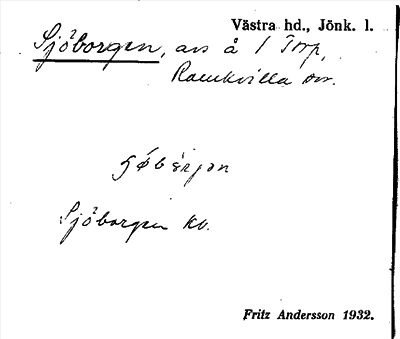 Västra hd., Jönk. l.
Sjöborgen, avs å 1 Torp,
Ramkvilla sn.
Sjöborgen kv.
Fritz Andersson 1932.